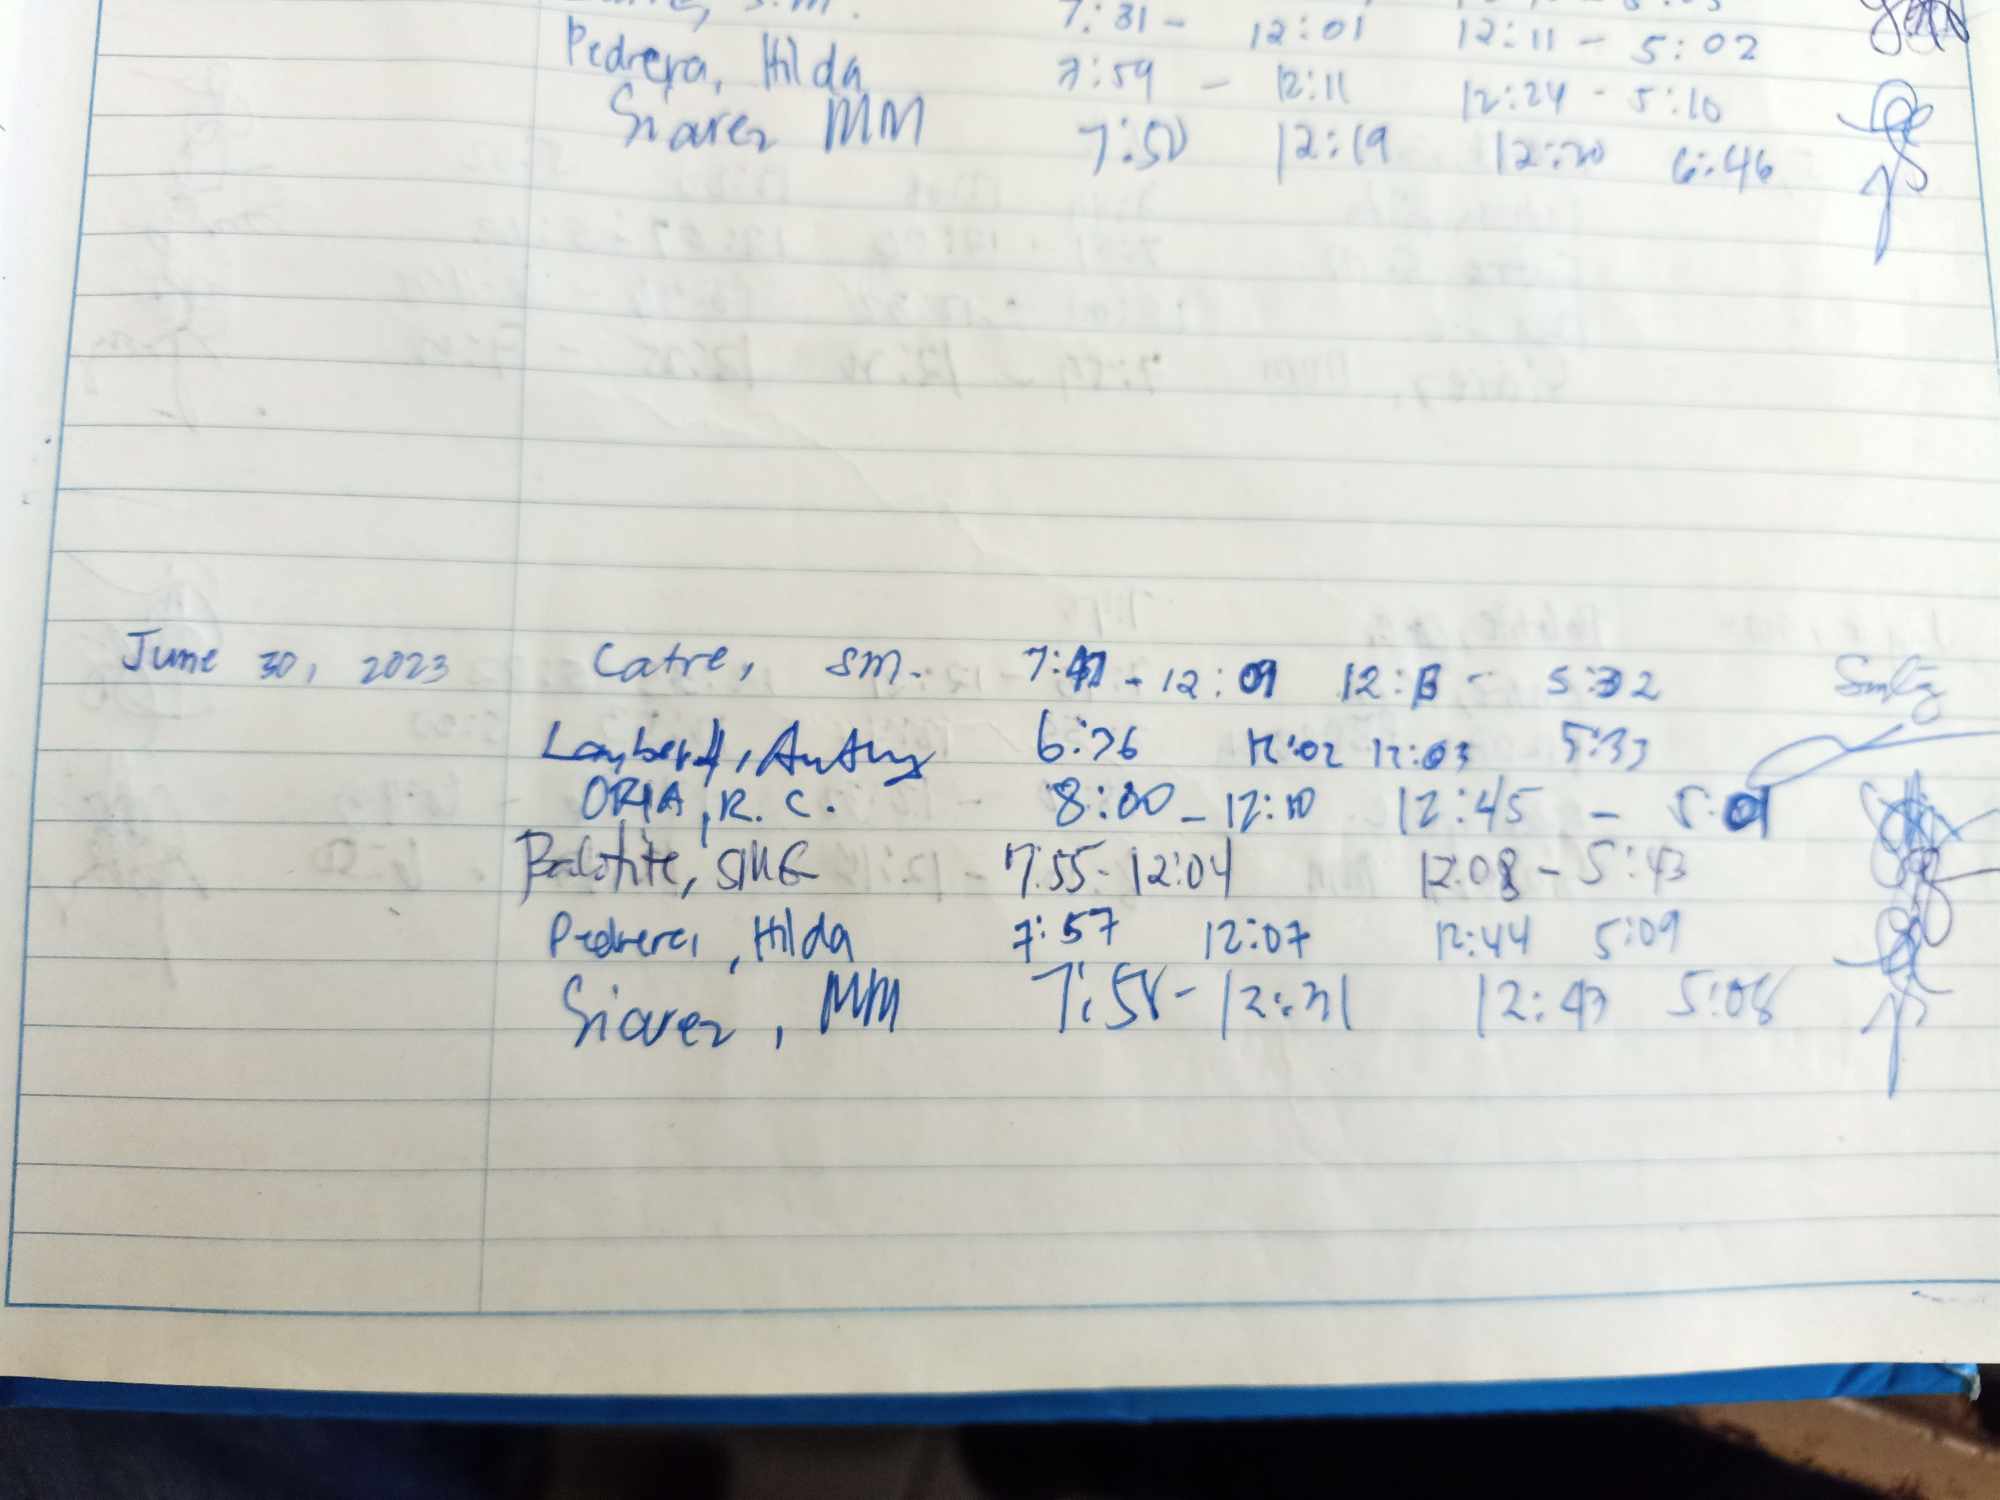 7:31 - 12:01 12:11 - 5:02
Pedrera, Hilda 7:59 - 12:11 12:24 - 5:10
Siarez MM 7:50 12:19 12:20 6:46
June 30, 2023 Catre, SM. 7:47 - 12:09 12:13 - 5:32
6:36 12:02 12:03 5:33
ORIA, R. C. 8:00 - 12:10 12:45 - 5:01
7:55 - 12:04 12:08 - 5:43
Pedrera, Hilda 7:57 12:07 12:44 5:09
Siarez, MM 7:58 - 12:31 12:43 5:08